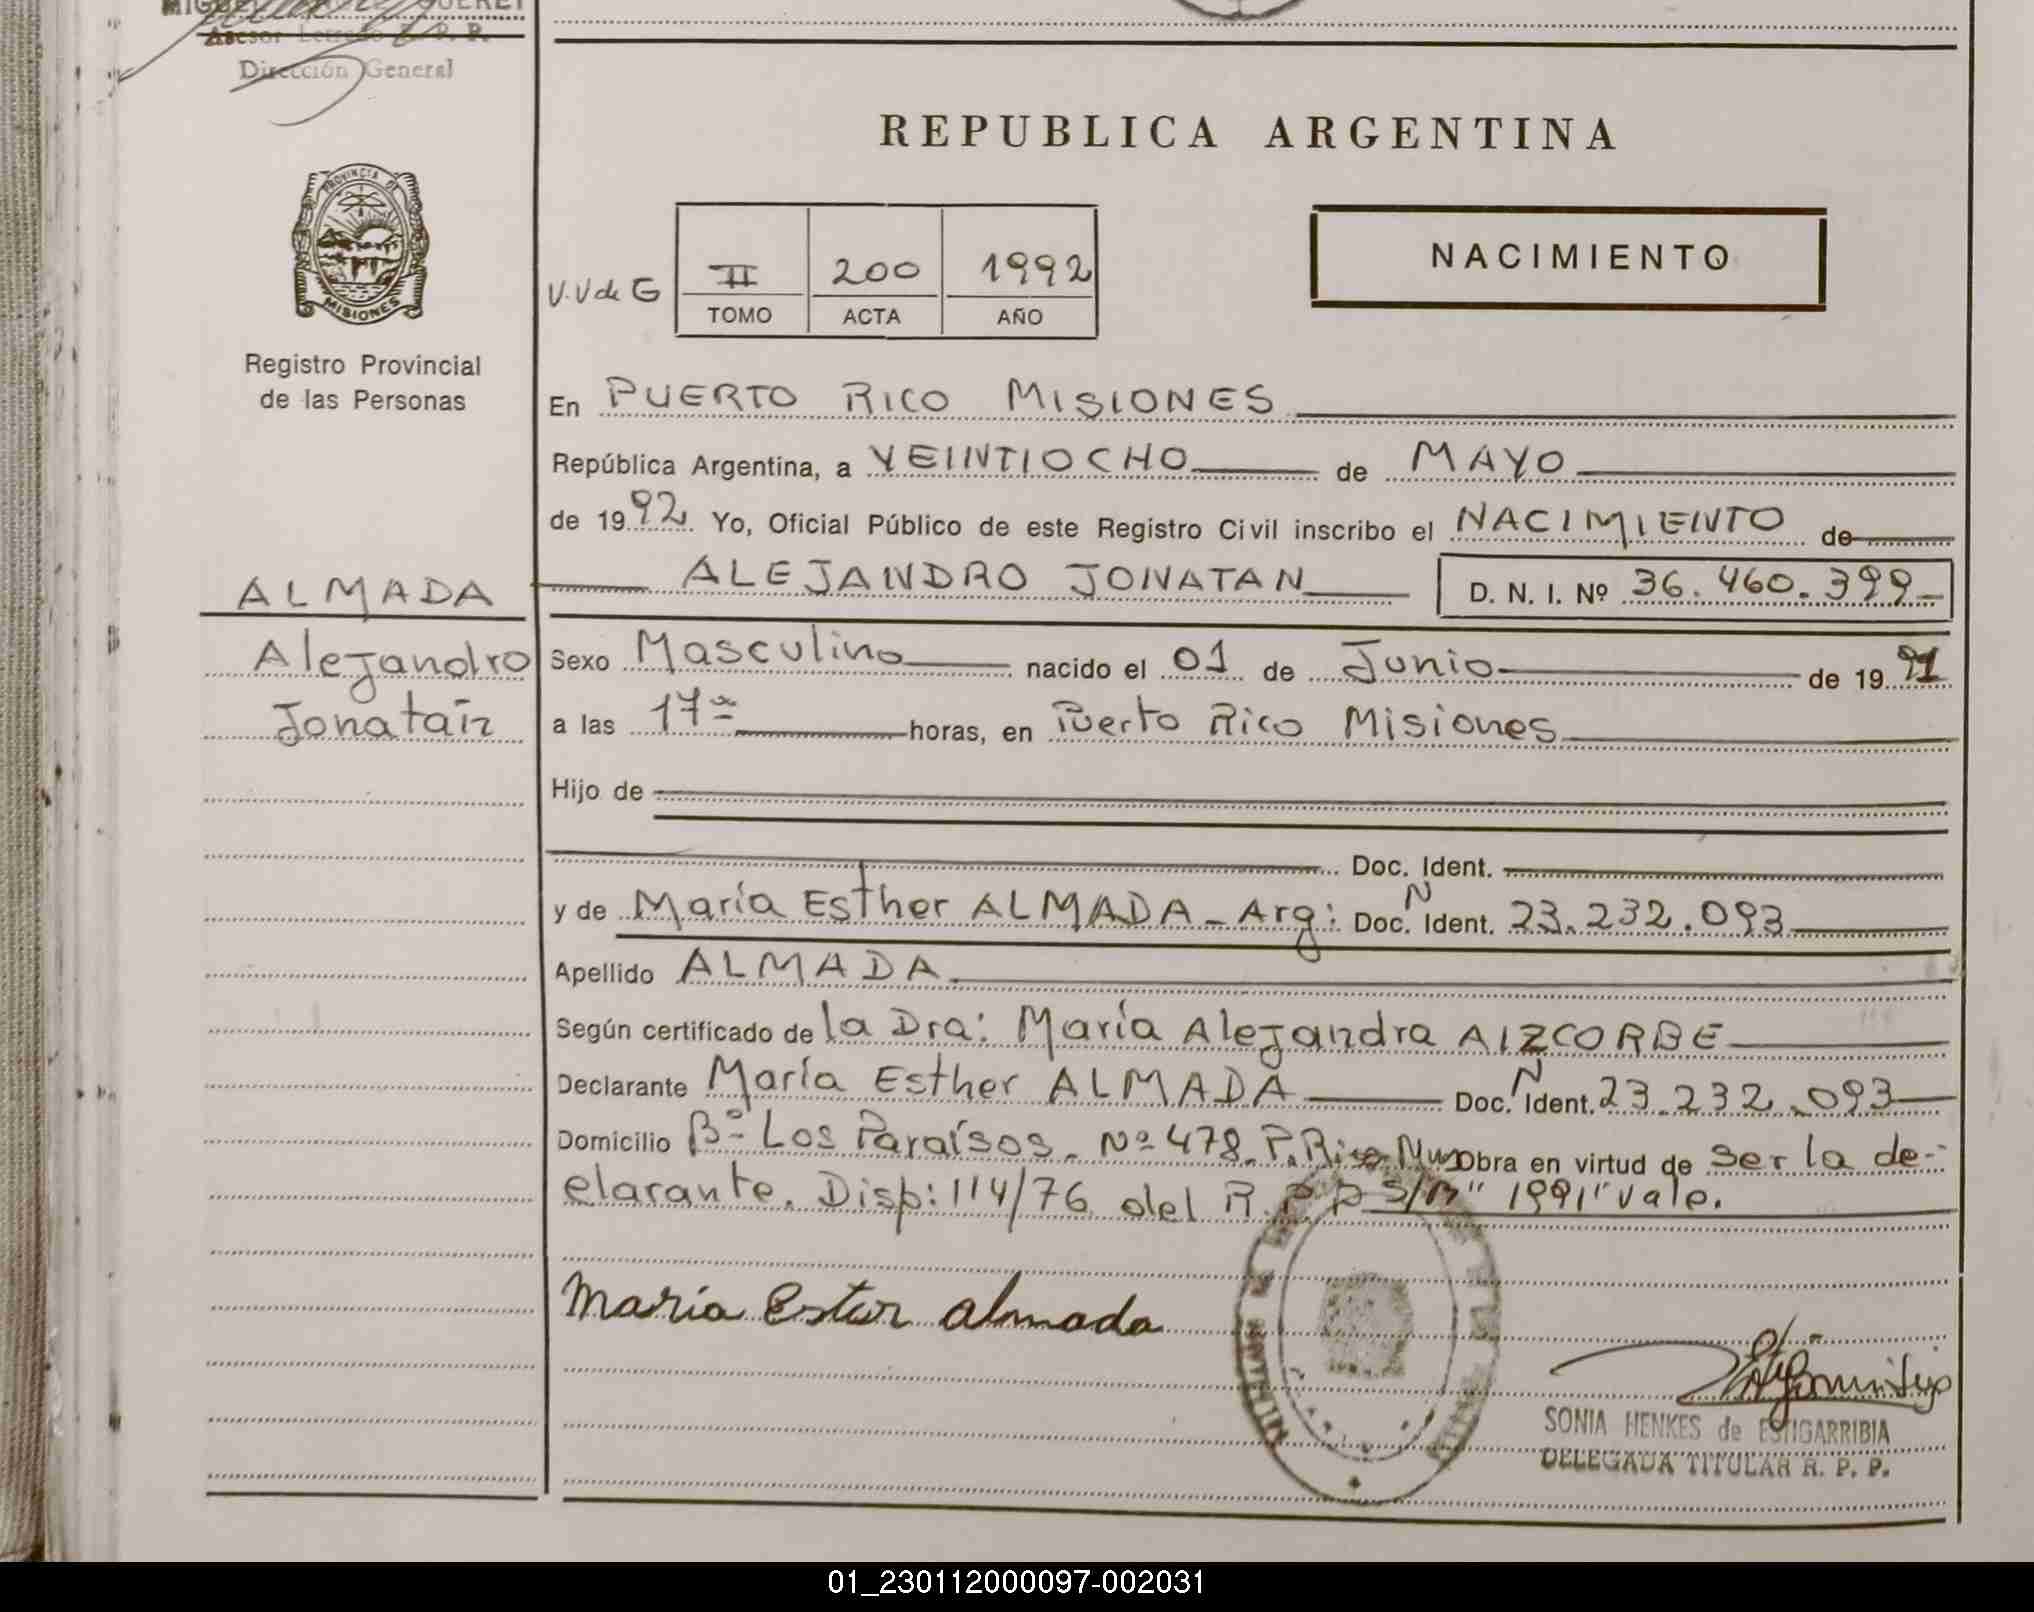 Asesor Letrado R. P. P.
Dirección General
REPUBLICA ARGENTINA
PROVINCIA DE
MISIONES
Registro Provincial
de las Personas
V.V de G
II 200 1992
TOMO ACTA AÑO
NACIMIENTO
En PUERTO RICO MISIONES
República Argentina, a VEINTIOCHO de MAYO
de 1992. Yo, Oficial Público de este Registro Civil inscribo el NACIMIENTO de
ALEJANDRO JONATAN D. N. I. Nº 36.460.399
ALMADA
Alejandro
Jonatan
Sexo Masculino nacido el 01 de Junio de 1991
a las 17 horas, en Puerto Rico Misiones
Hijo de
Doc. Ident.
y de María Esther ALMADA - Arg: Doc. N Ident. 23.232.093
Apellido ALMADA
Según certificado de la Dra: María Alejandra AIZCORBE
Declarante María Esther ALMADA Doc. N Ident. 23.232.093
Domicilio Bº Los Paraísos - Nº 478 - P. Rico Obra en virtud de ser la de-
clarante. Disp: 114/76 del R. P. P. S/B "1991" vale.
María Ester Almada
SONIA HENKES de ESTIGARRIBIA
DELEGADA TITULAR R. P. P.
01_230112000097-002031